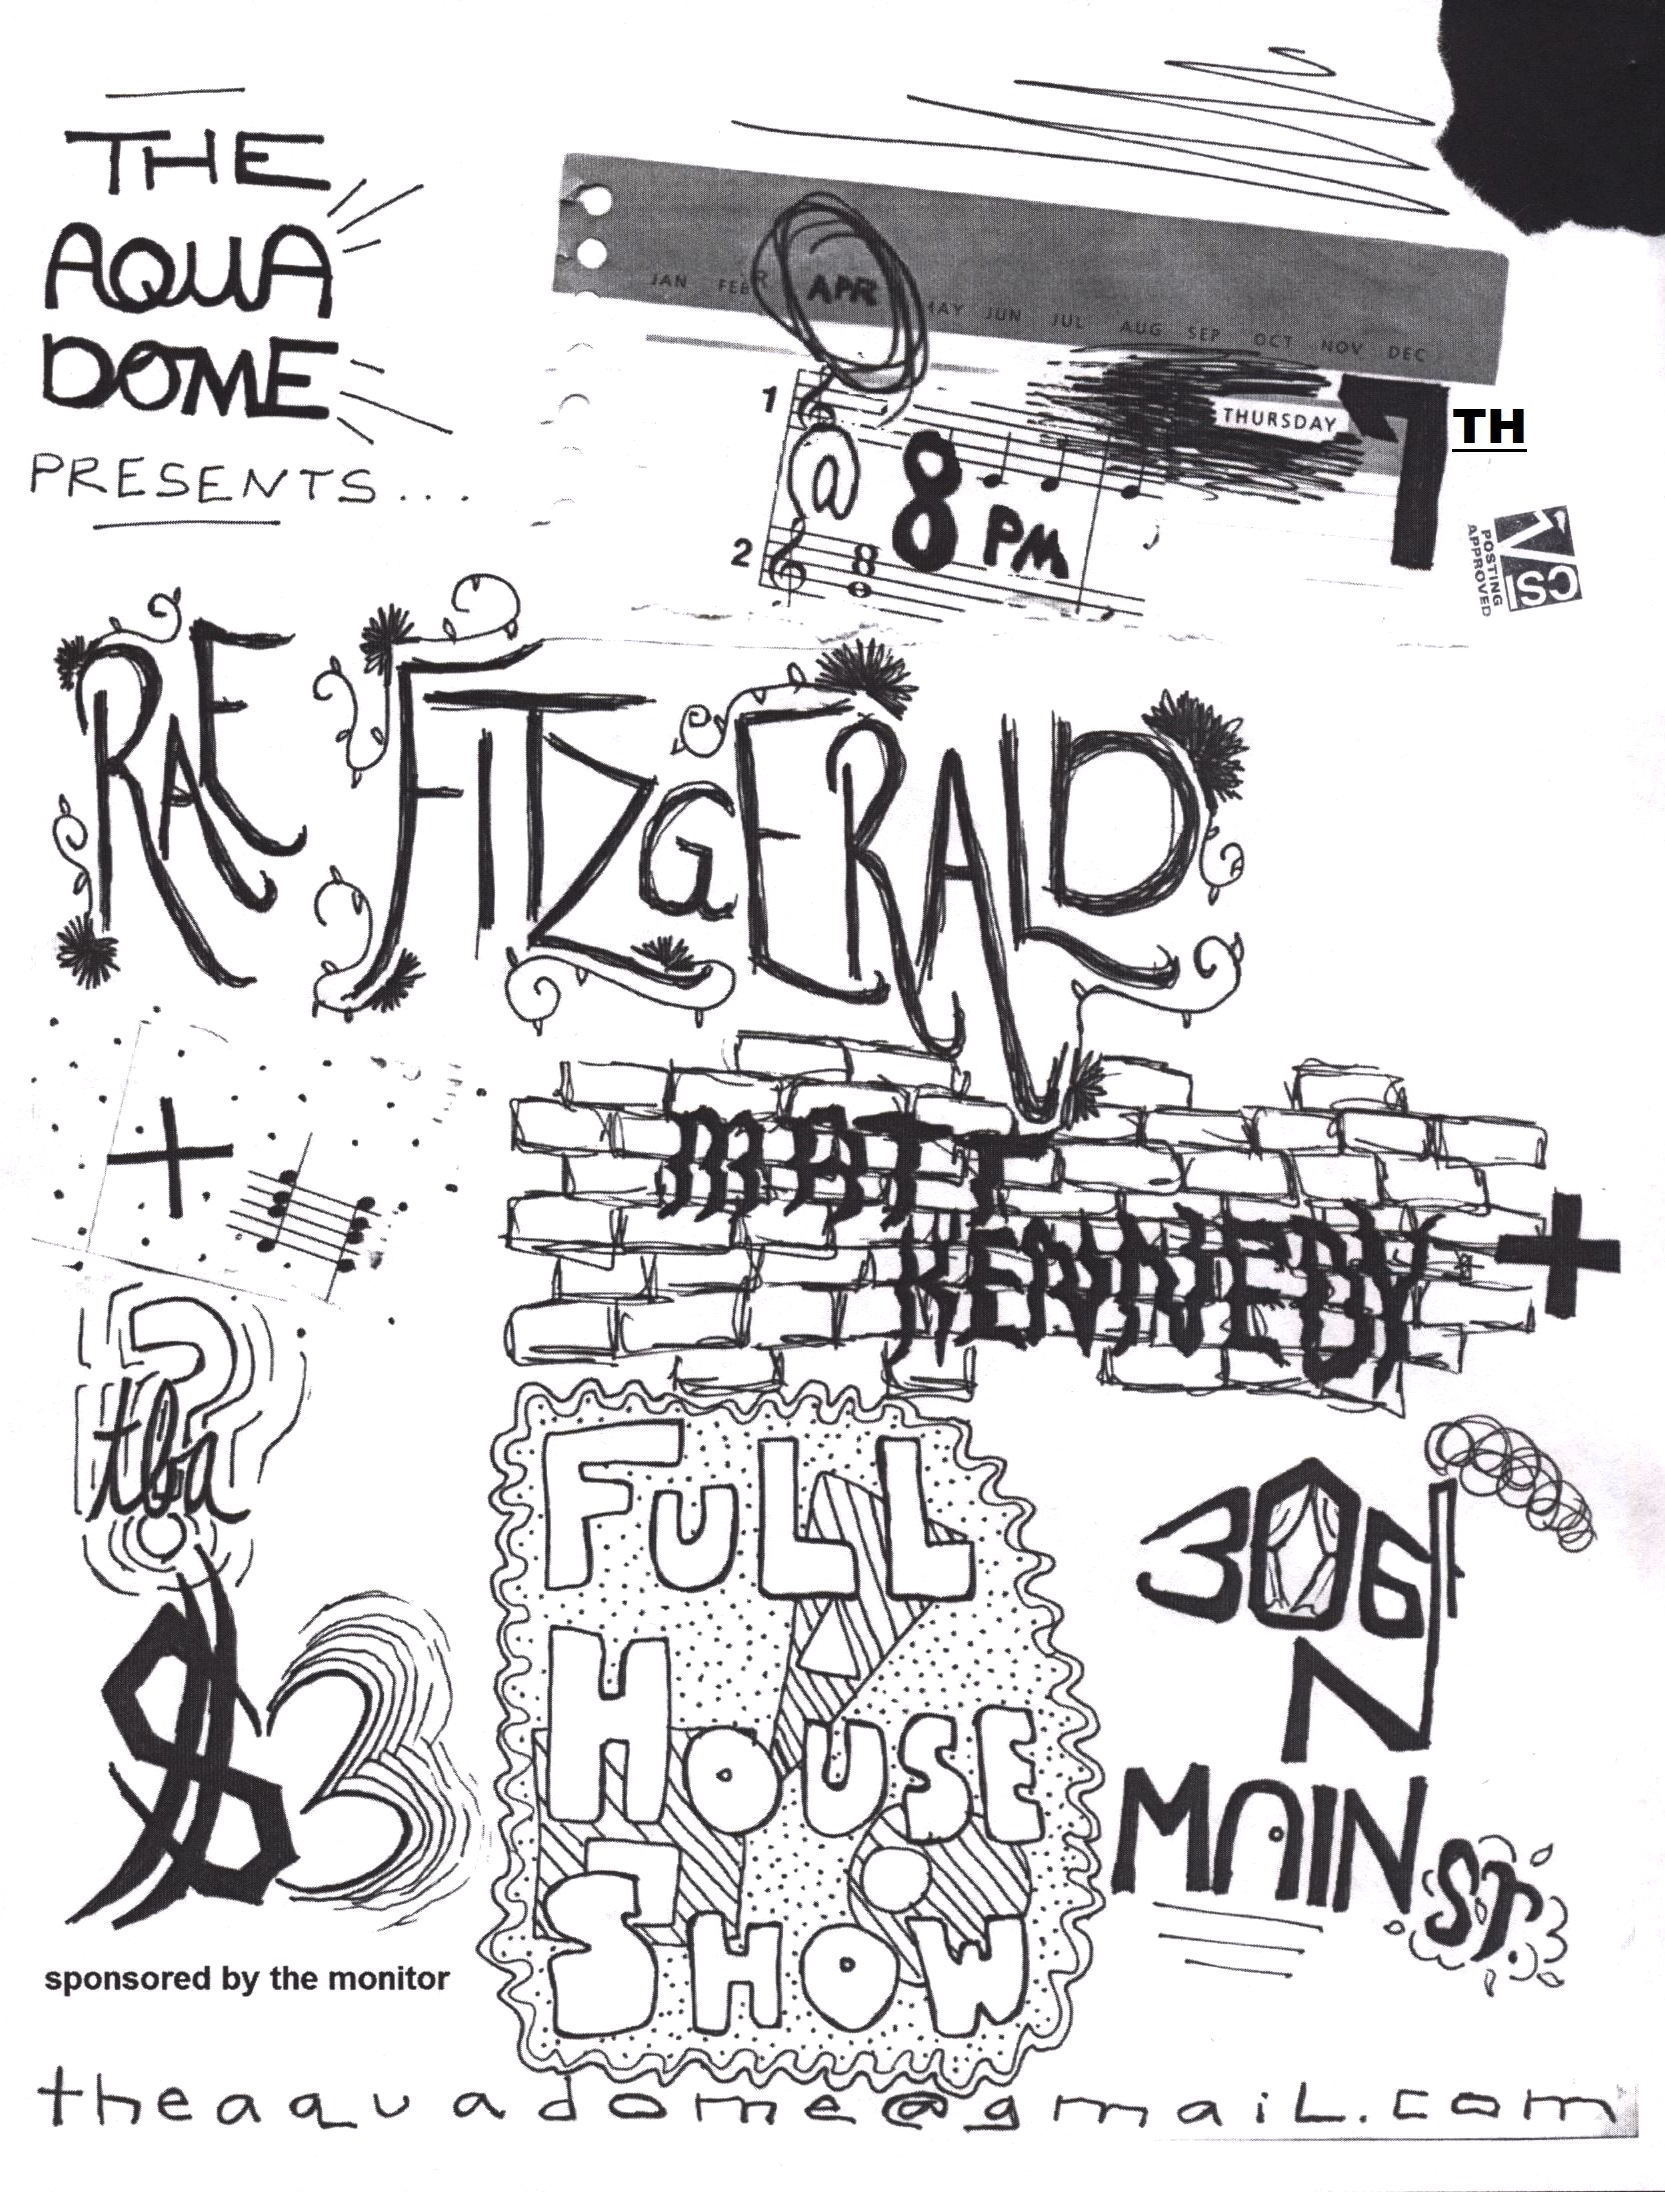 THE
AQUA
DOME
PRESENTS...
JAN FEB APR MAY JUN JUL AUG SEP OCT NOV DEC
THURSDAY 7TH
1
@ 8 PM
2
CSI
POSTING
APPROVED
RAE FITZGERALD
+
MATT
KENNEDY +
?
tba
FULL
HOUSE
SHOW
306
N
MAIN ST.
$3
sponsored by the monitor
theaquadome@gmaiL.com